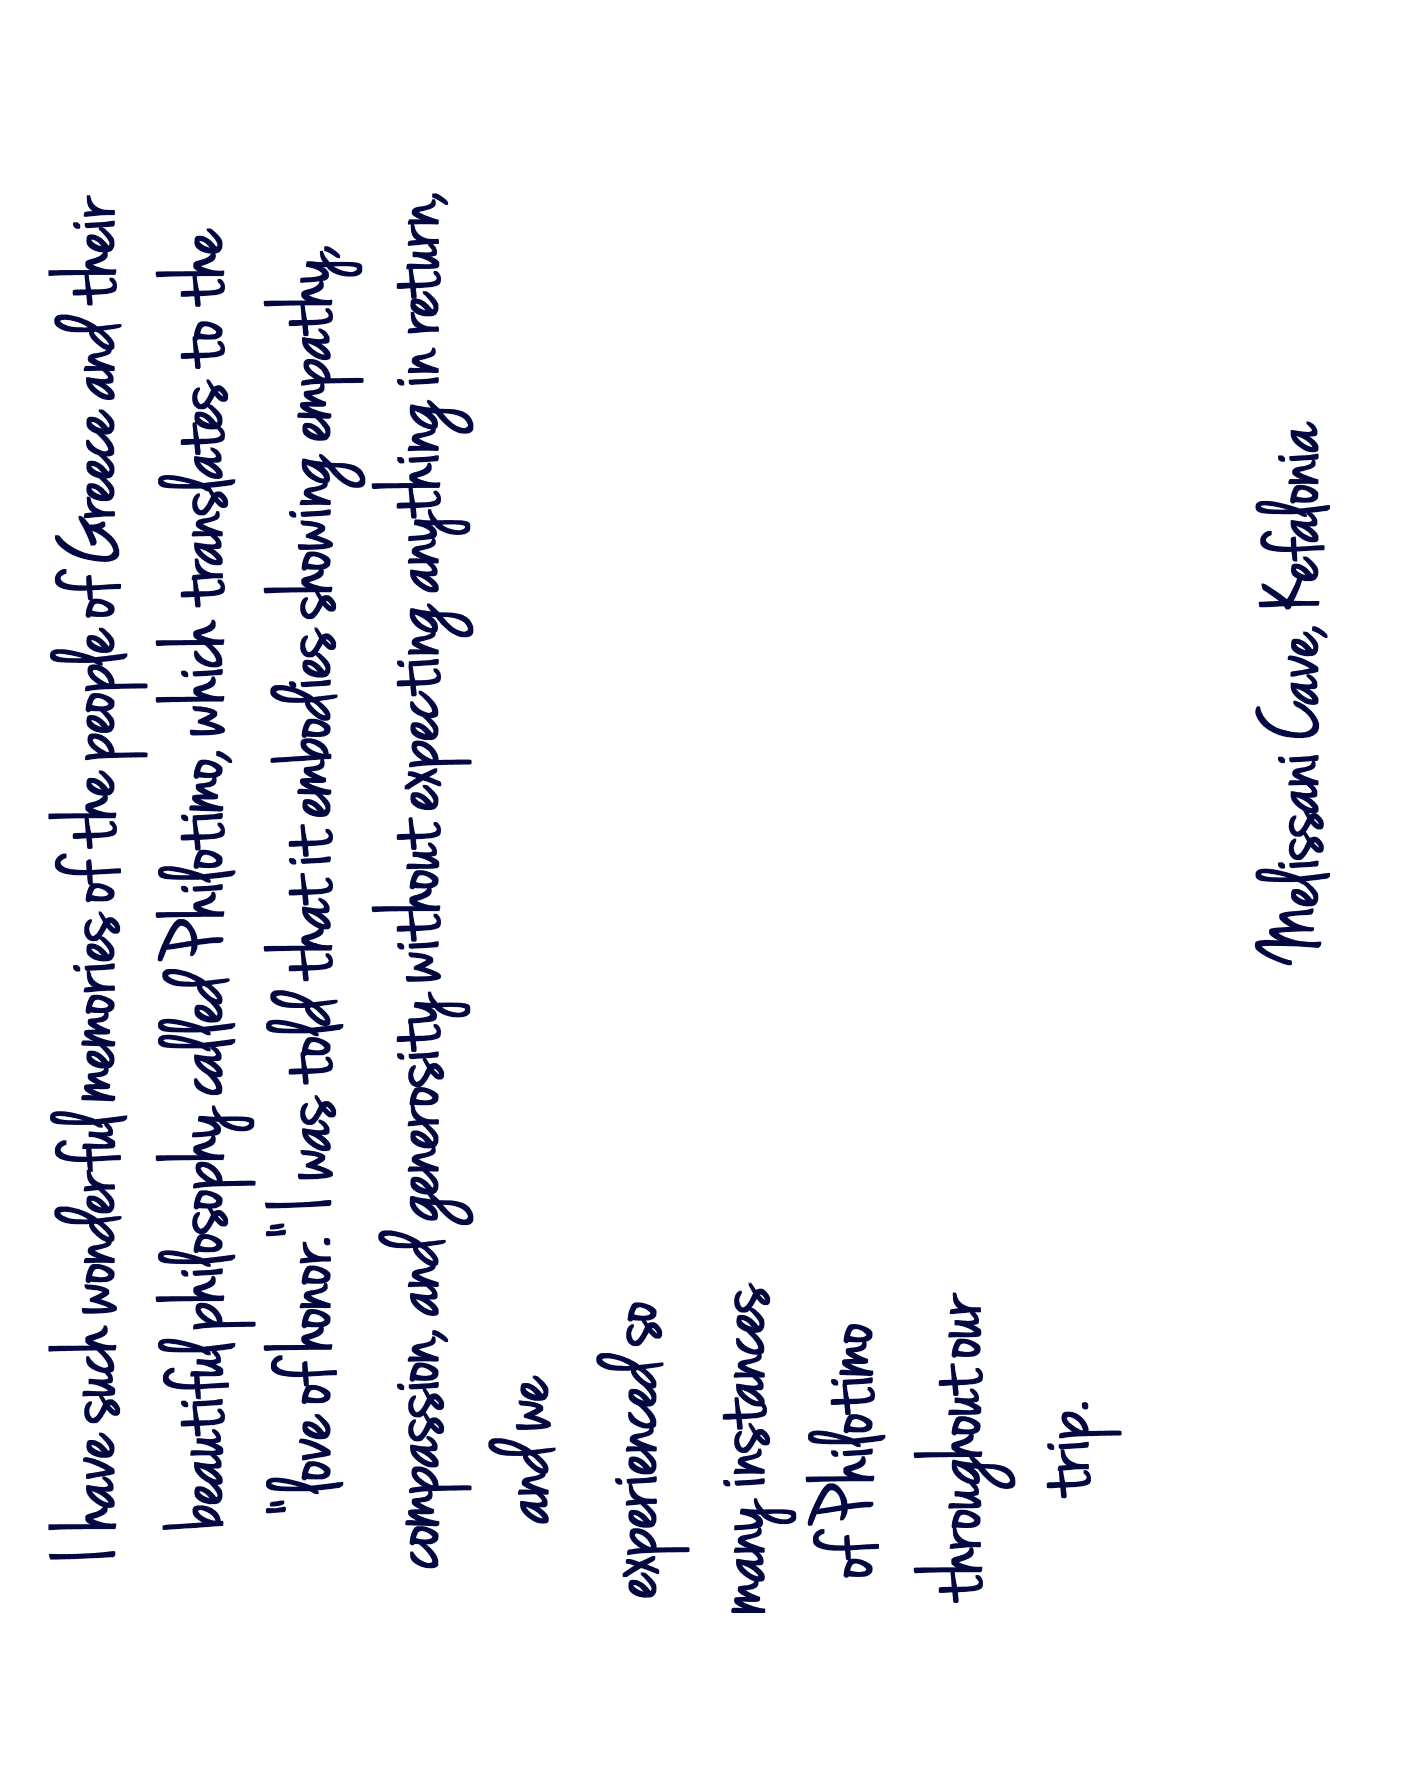 I have such wonderful memories of the people of Greece and their
beautiful philosophy called Philotimo, which translates to the
"love of honor." I was told that it embodies showing empathy,
compassion, and generosity without expecting anything in return,
and we
experienced so
many instances
of Philotimo
throughout our
trip.
Melissani Cave, Kefalonia